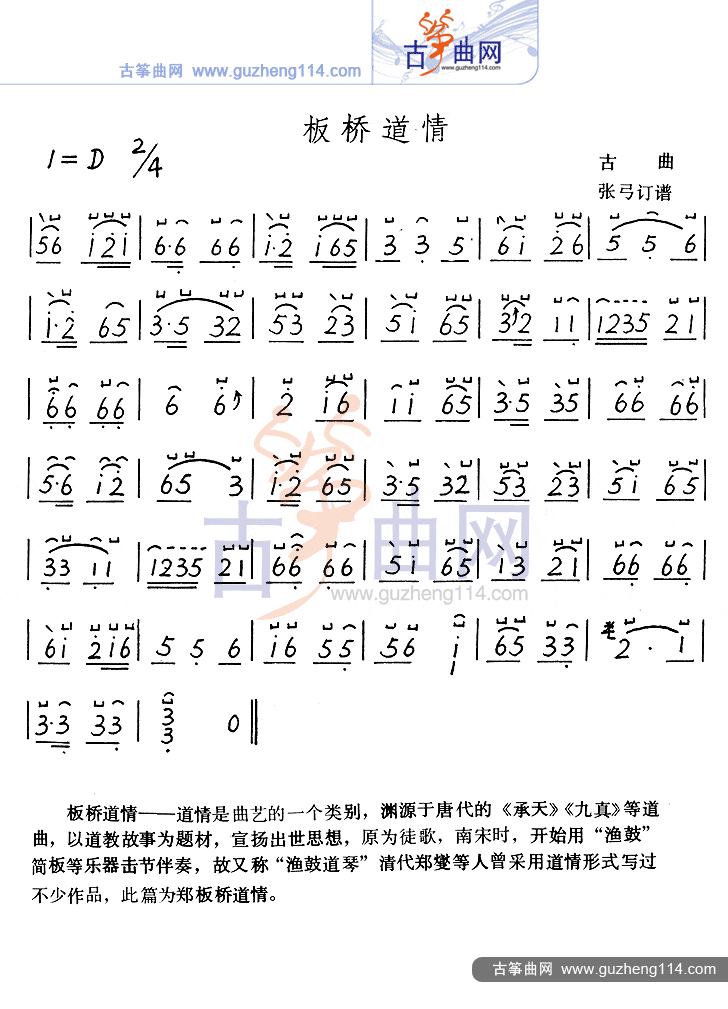 古筝曲网 www.guzheng114.com
古筝曲网
www.guzheng114.com
板桥道情
1=D 2/4
古 曲
张弓订谱
56 i2i | 6·6 66 | i·2 i65 | 3 3 5 | 6i 26 | 5 5 6 |
i·2 65 | 3·5 32 | 53 23 | 5i 65 | 32 11 | 1235 21 |
66 66 | 6 6 | 2 i6 | ii 65 | 3·5 35 | 66 66 |
5·6 i2 | 65 3 | i·2 65 | 3·5 32 | 53 23 | 5i 65 |
33 11 | 1235 21 | 66 66 | 5i 65 | i3 21 | 66 66 |
6i 2i6 | 5 5 6 | i6 55 | 56 i 1 | 65 33 | 2 · 1 |
3·3 33 | 3 3 0 ‖
古曲网
www.guzheng114.com
板桥道情——道情是曲艺的一个类别，渊源于唐代的《承天》《九真》等道
曲，以道教故事为题材，宣扬出世思想，原为徒歌，南宋时，开始用“渔鼓”
简板等乐器击节伴奏，故又称“渔鼓道琴”清代郑燮等人曾采用道情形式写过
不少作品，此篇为郑板桥道情。
古筝曲网 www.guzheng114.com